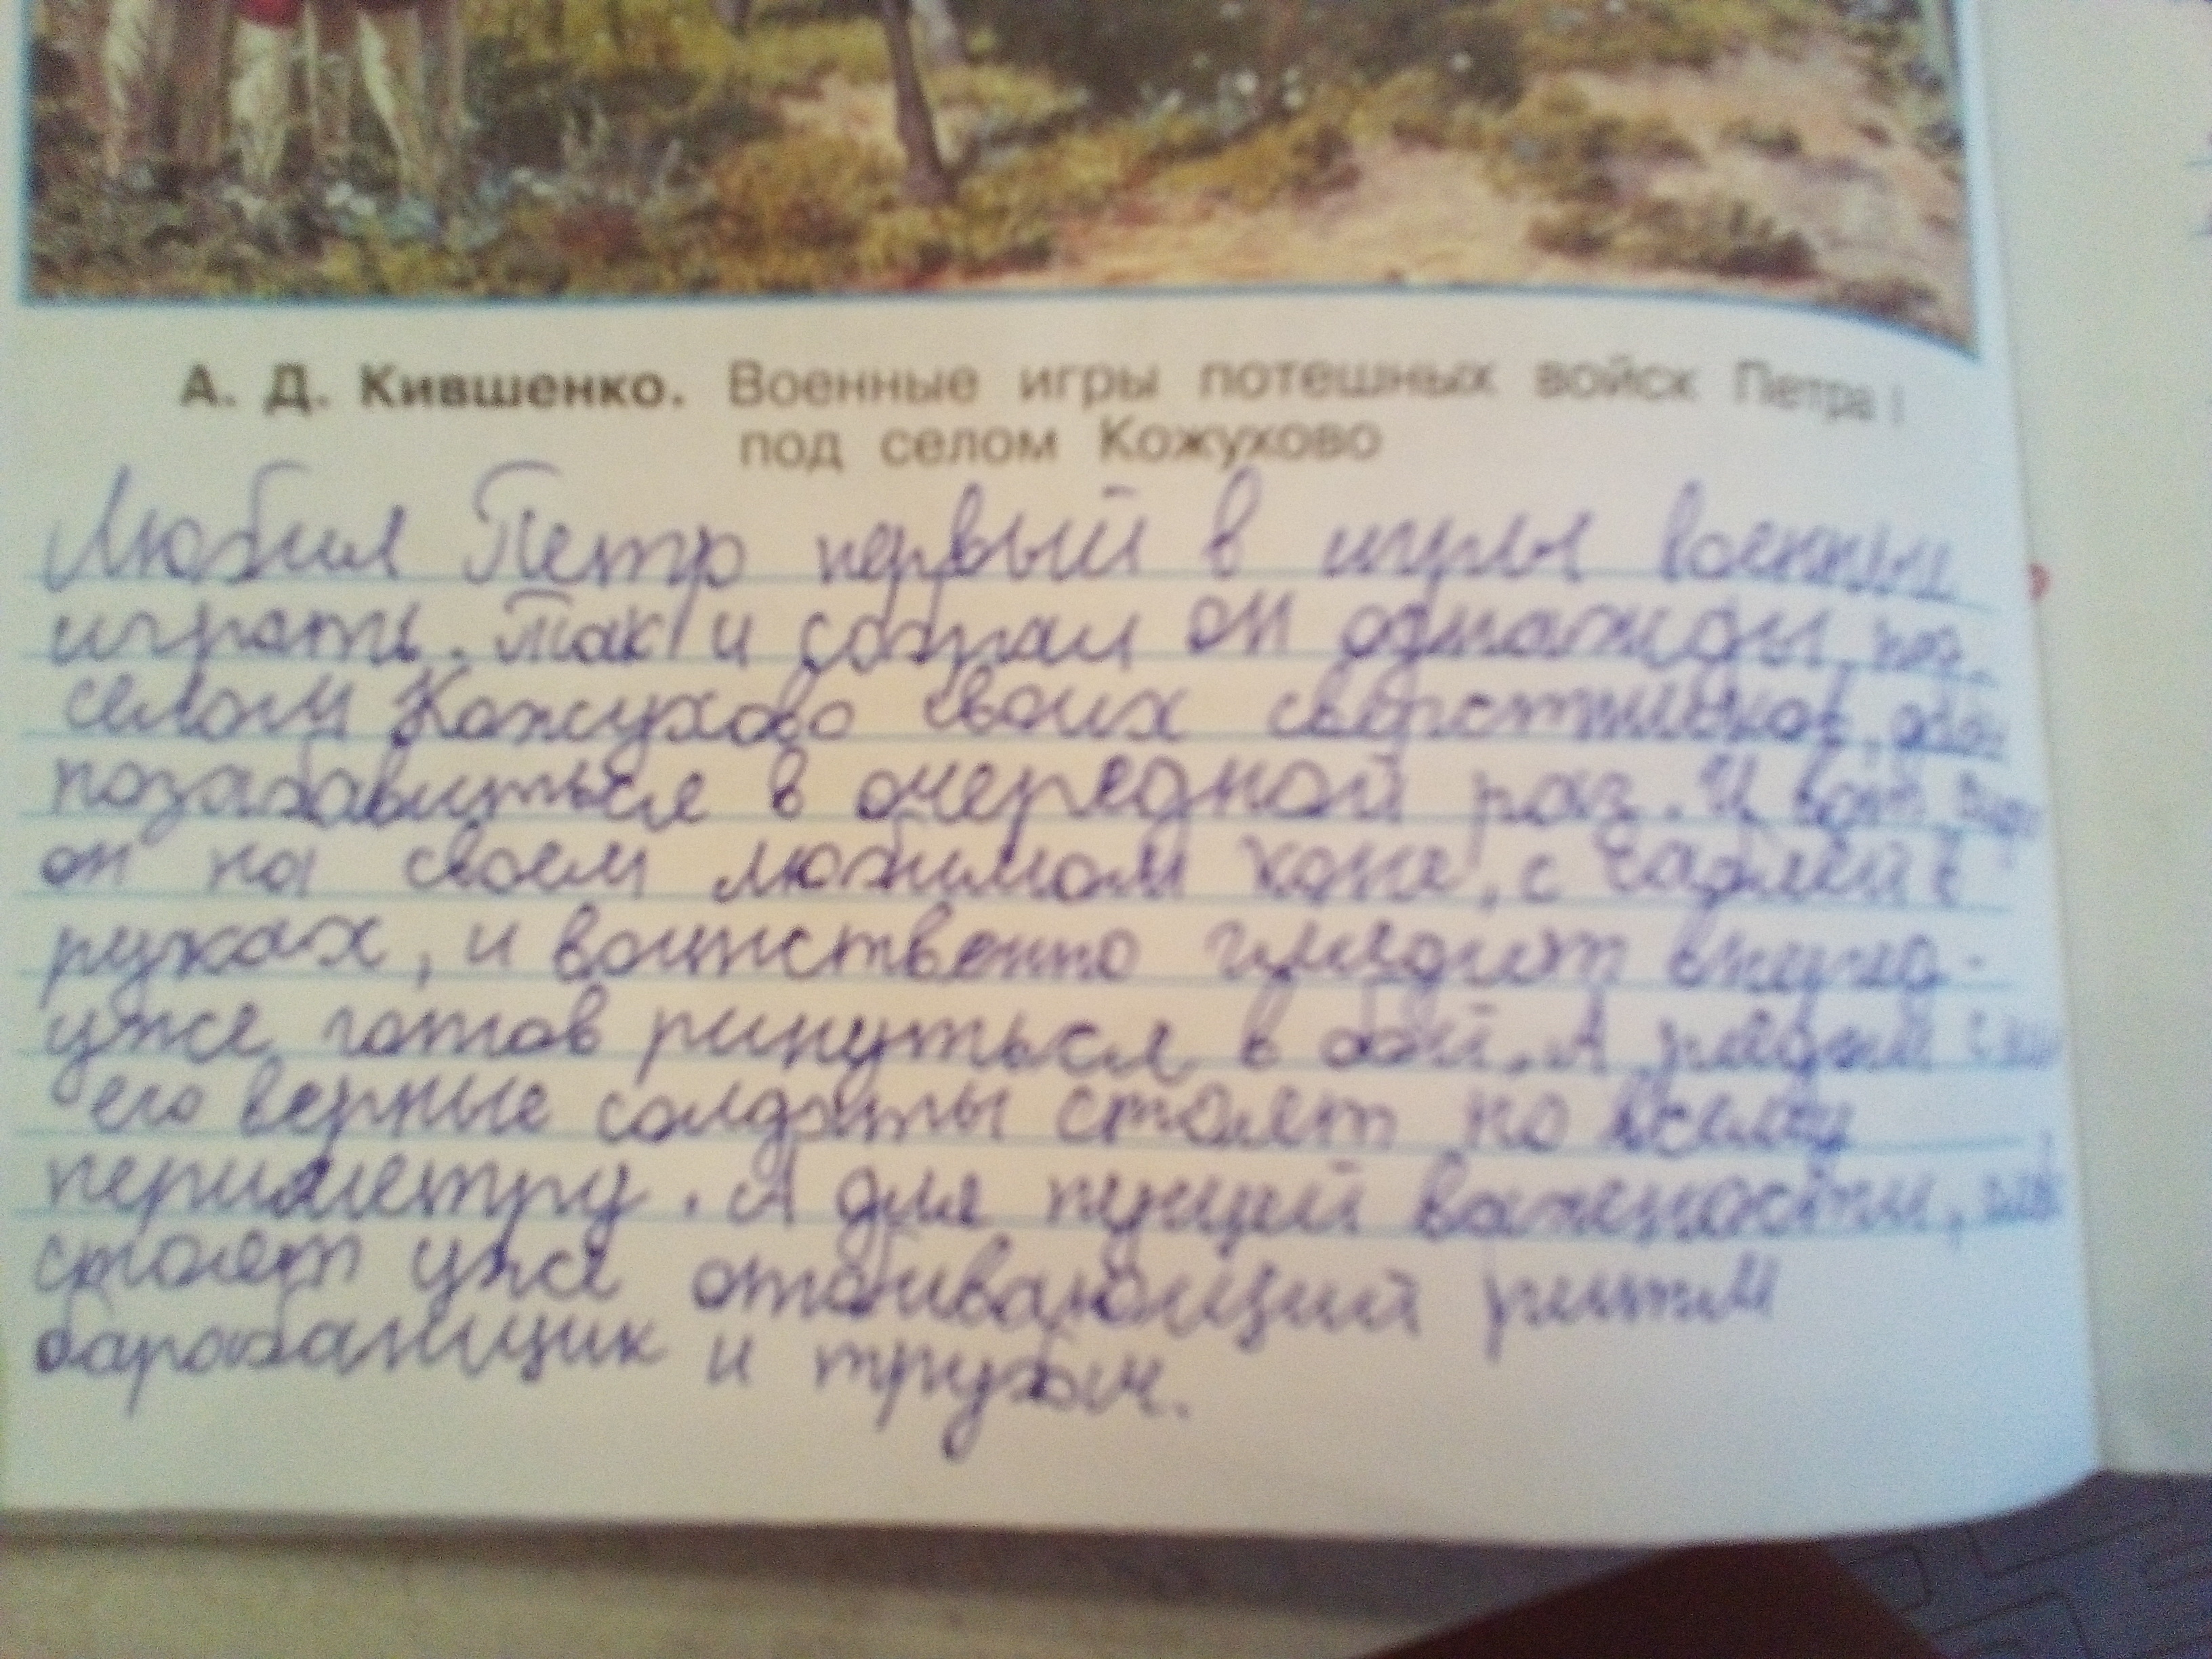 А. Д. Кившенко. Военные игры потешных войск Петра I
под селом Кожухово
Любил Петр первый в игры военные
играть. Так и собрал он однажды под
селом Кожухово своих сверстников, дабы
позабавиться в очередной раз. И вот
он на своем любимом коне, с саблей в
руках, и воинственно глядит вперед.
уже готов ринуться в бой. А рядом с ним
его верные солдаты стоят по всему
периметру. А для пущей важности,
стоят уже отбивающий ритм
барабанщик и трубач.